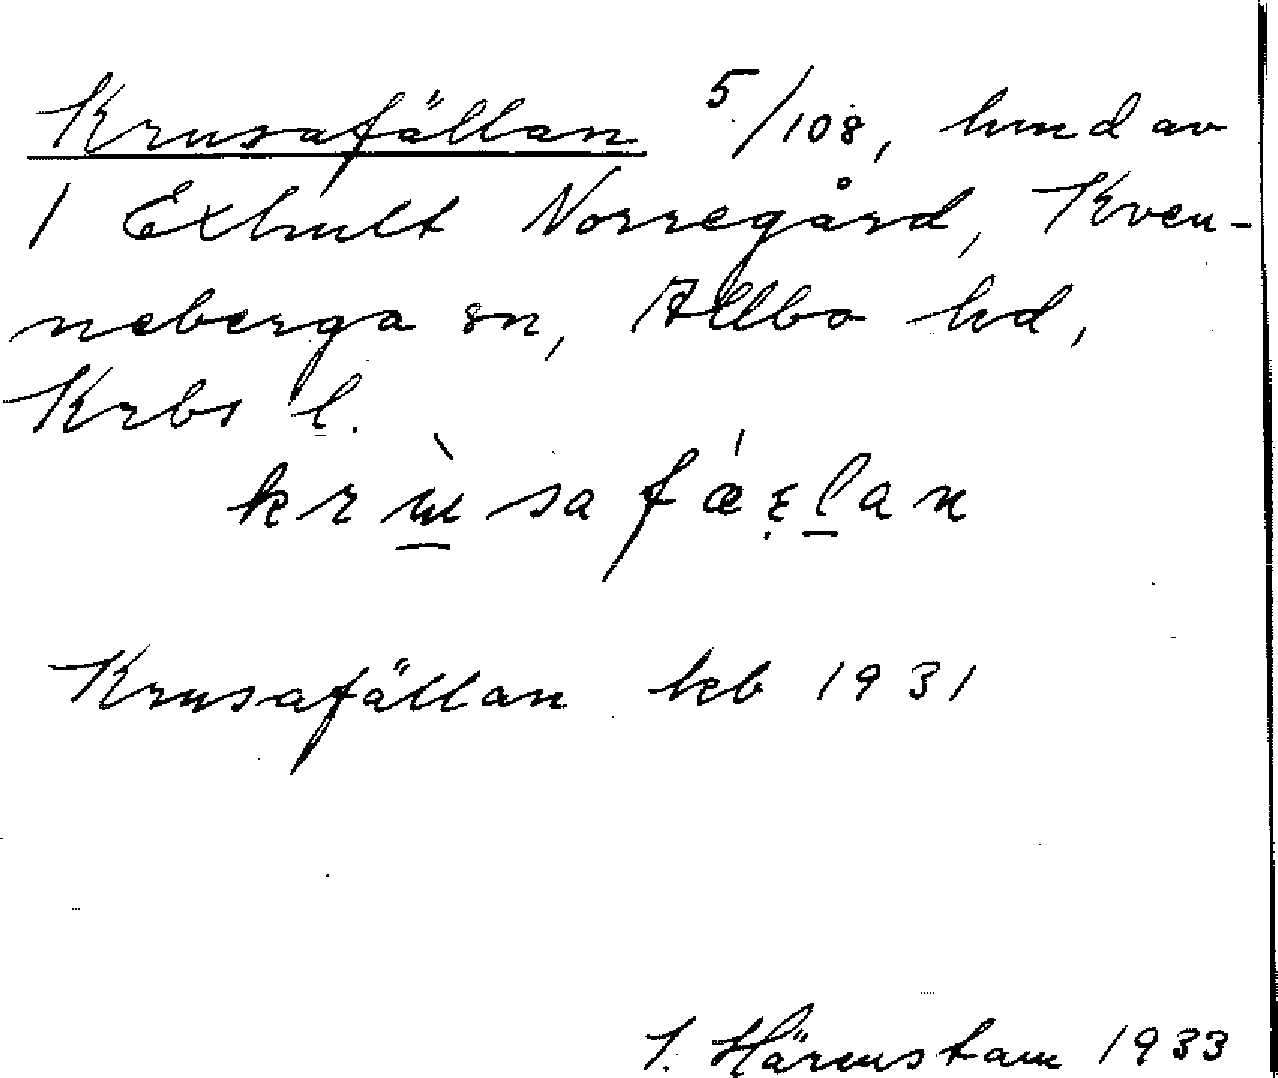 Krusafällan 5/108, hmd av
1 Exhult Norregård, Kven-
neberga sn, Allbo hd,
Krbs l.
Krusafällan kb 1931
I. Härenstam 1933